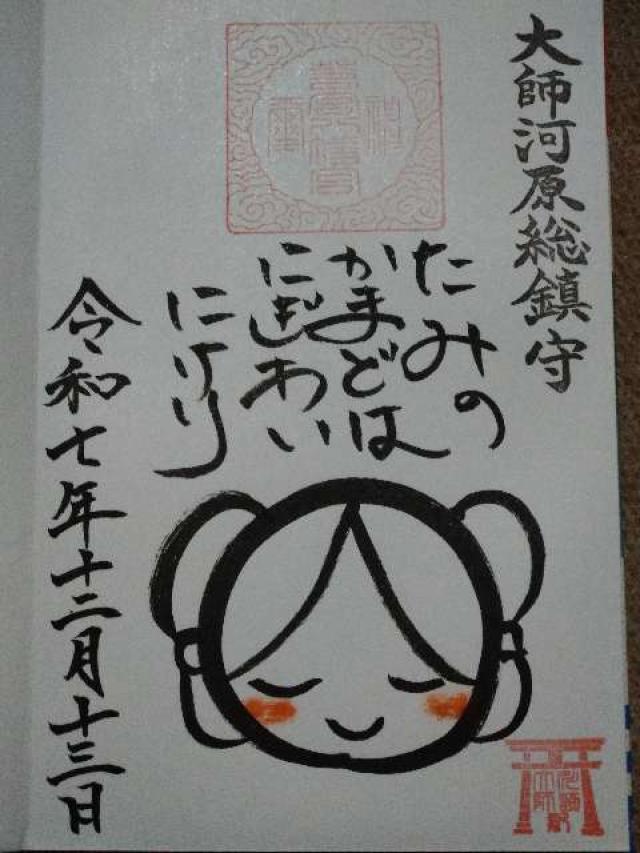 大師河原総鎮守
たみの
かまどは
にぎわい
にけり
令和七年十二月十三日